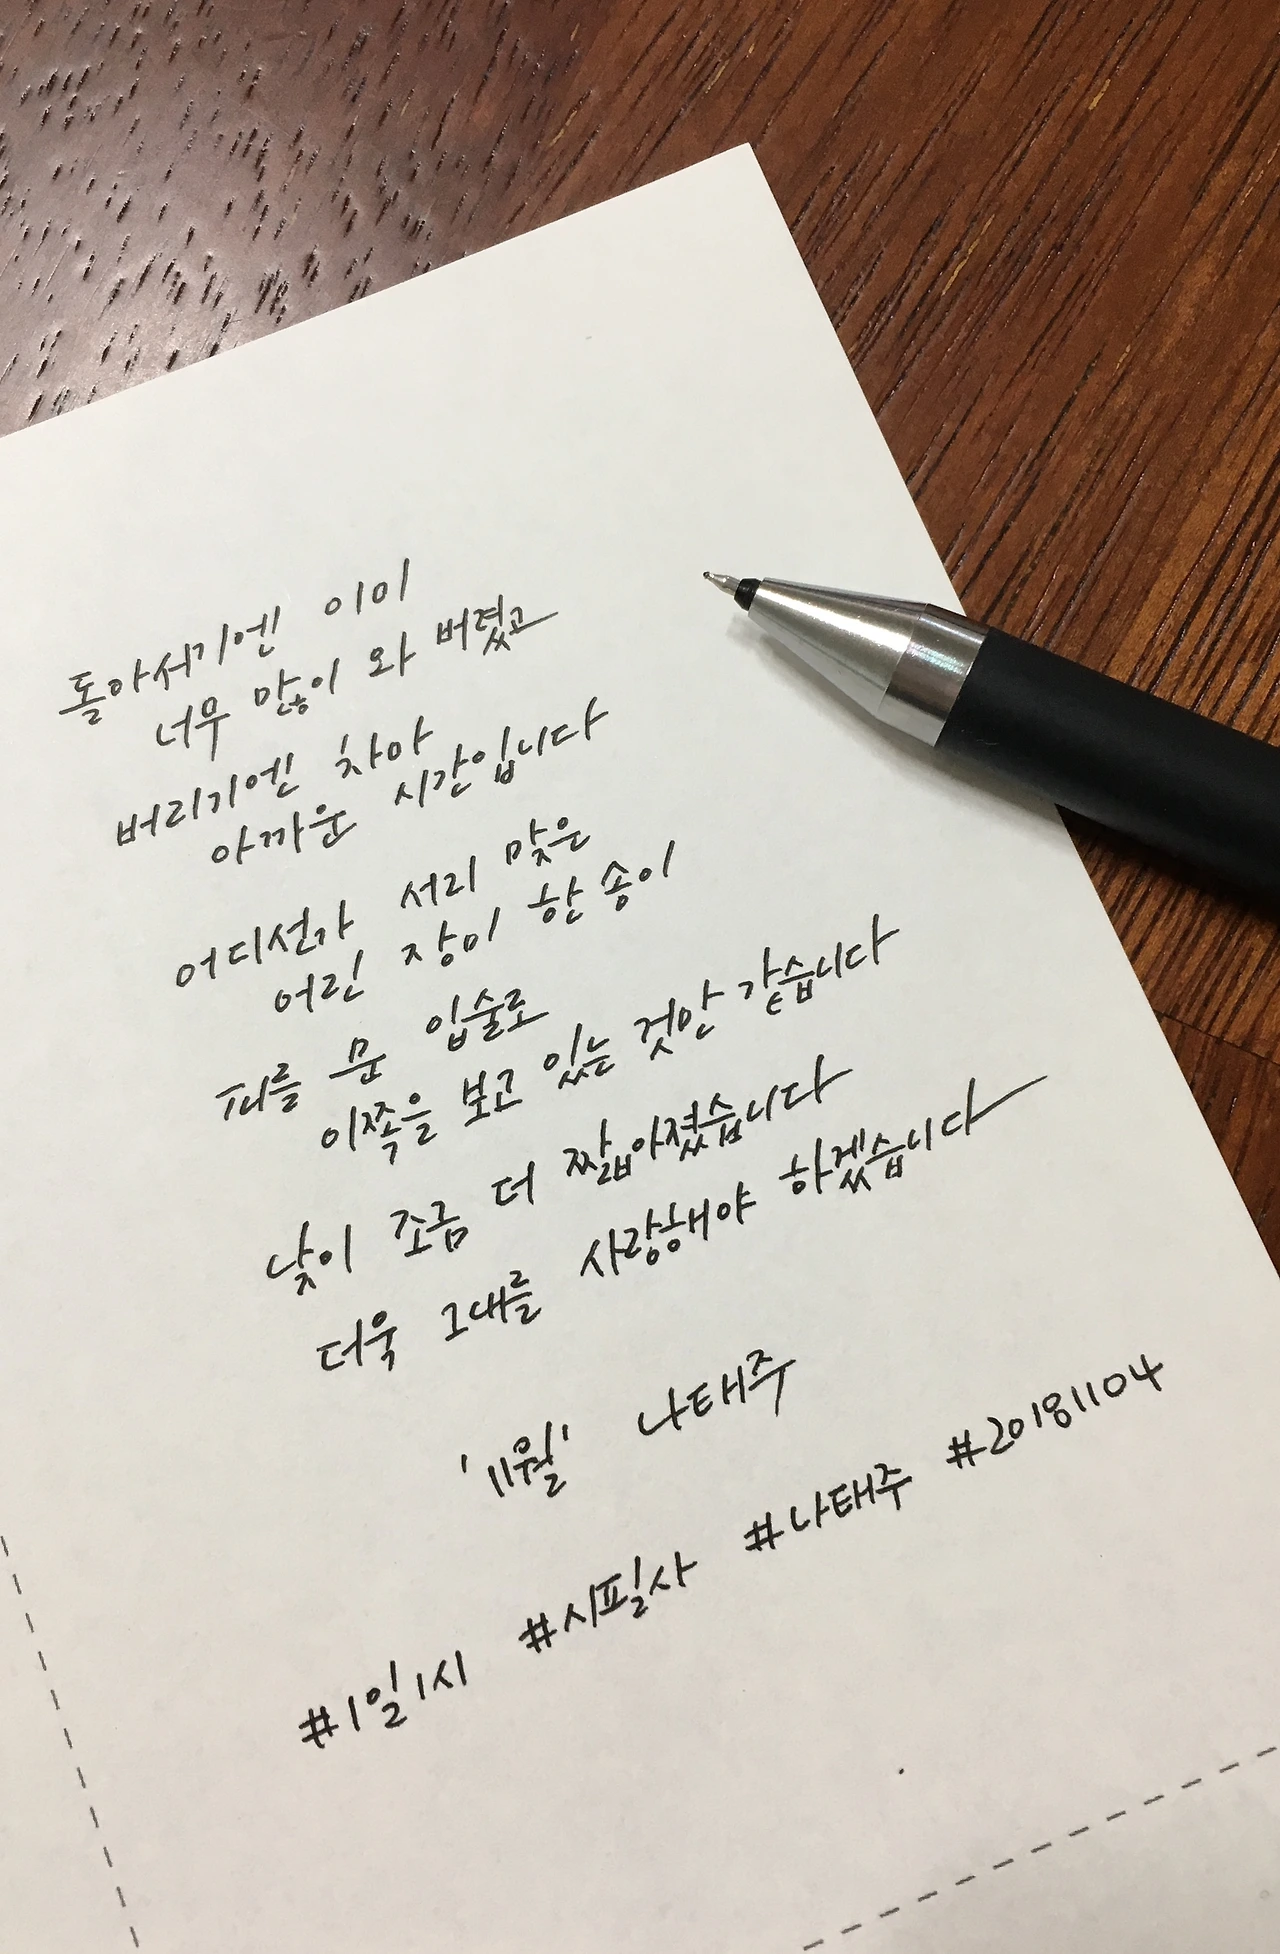 돌아서기엔 이미
너무 많이 와 버렸고
버리기엔 차마
아까운 시간입니다
어디선가 서리 맞은
어린 장미 한 송이
피를 문 입술로
이쪽을 보고 있는 것만 같습니다
낮이 조금 더 짧아졌습니다
더욱 그대를 사랑해야 하겠습니다
'11월' 나태주
#1일1시 #시필사 #나태주 #20181104